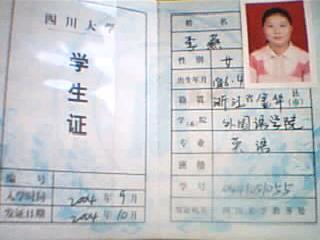 四川大学
学生证
编号
入学时间 2004年9月
发证日期 2004年10月
姓名 李燕
性别 女
出生年月 1986.4
籍贯 浙江省金华县(市)
学(院) 外国语学院
专业 英语
班格
学号
发证机关 四川大学教务处